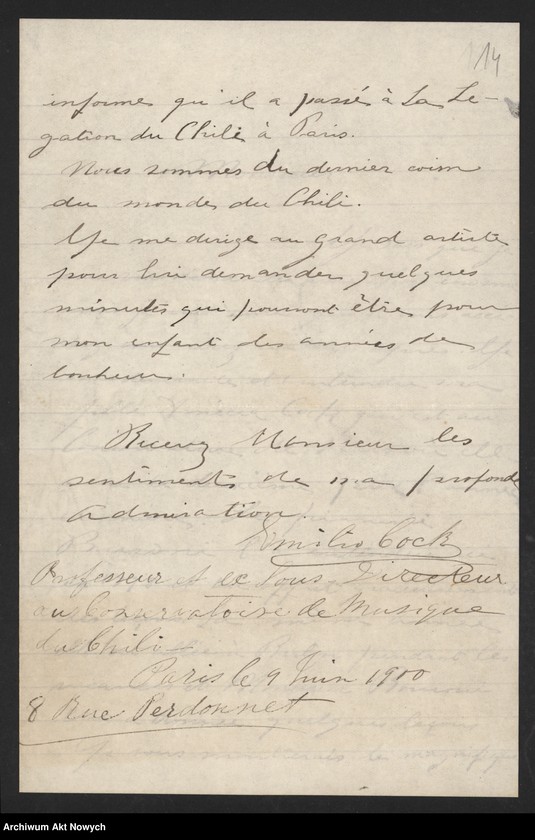 14
informe qu'il a passé à La Lé-
gation du Chili à Paris.
Nous sommes du dernier coim
du monde du Chili.
Je me dirige au grand artiste
pour lui demander quelques
minutes qui pourront être pour
mon enfant des années de
bonheur.
Recevez Monsieur les
sentiments de ma profonde
admiration.
Emilio Cock
Professeur et ex Sous-Directeur
au Conservatoire de Musique
du Chili
Paris le 9 Juin 1900
8 Rue Perdonnet
Archiwum Akt Nowych